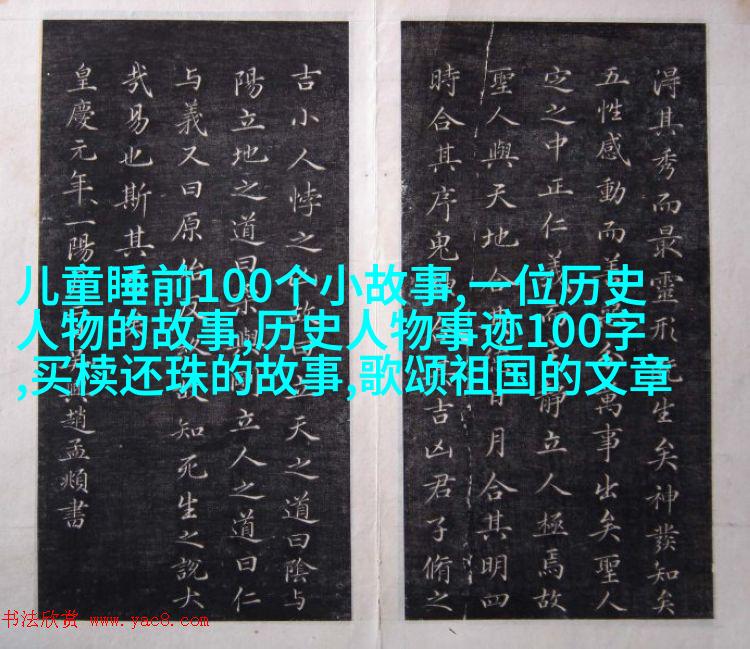 得其秀而最靈形生矣神發知矣
五性感動而善萬事出矣聖人
定之中正仁義而靜立人極焉故
聖人與天地合日月合其明四
時合其序鬼吉凶君子脩之
吉小人悖之故曰立天之道曰陰与
陽立地之道曰柔與立人之道曰仁
与義又曰原始反故知死生之說大
哉易也斯其矣
皇慶元年一陽吳趙孟頫書
儿童睡前100个小故事,一位历史
人物的故事,历史人物事迹100字
,买椟还珠的故事,歌颂祖国的文章
书法欣赏 www.yac8.com